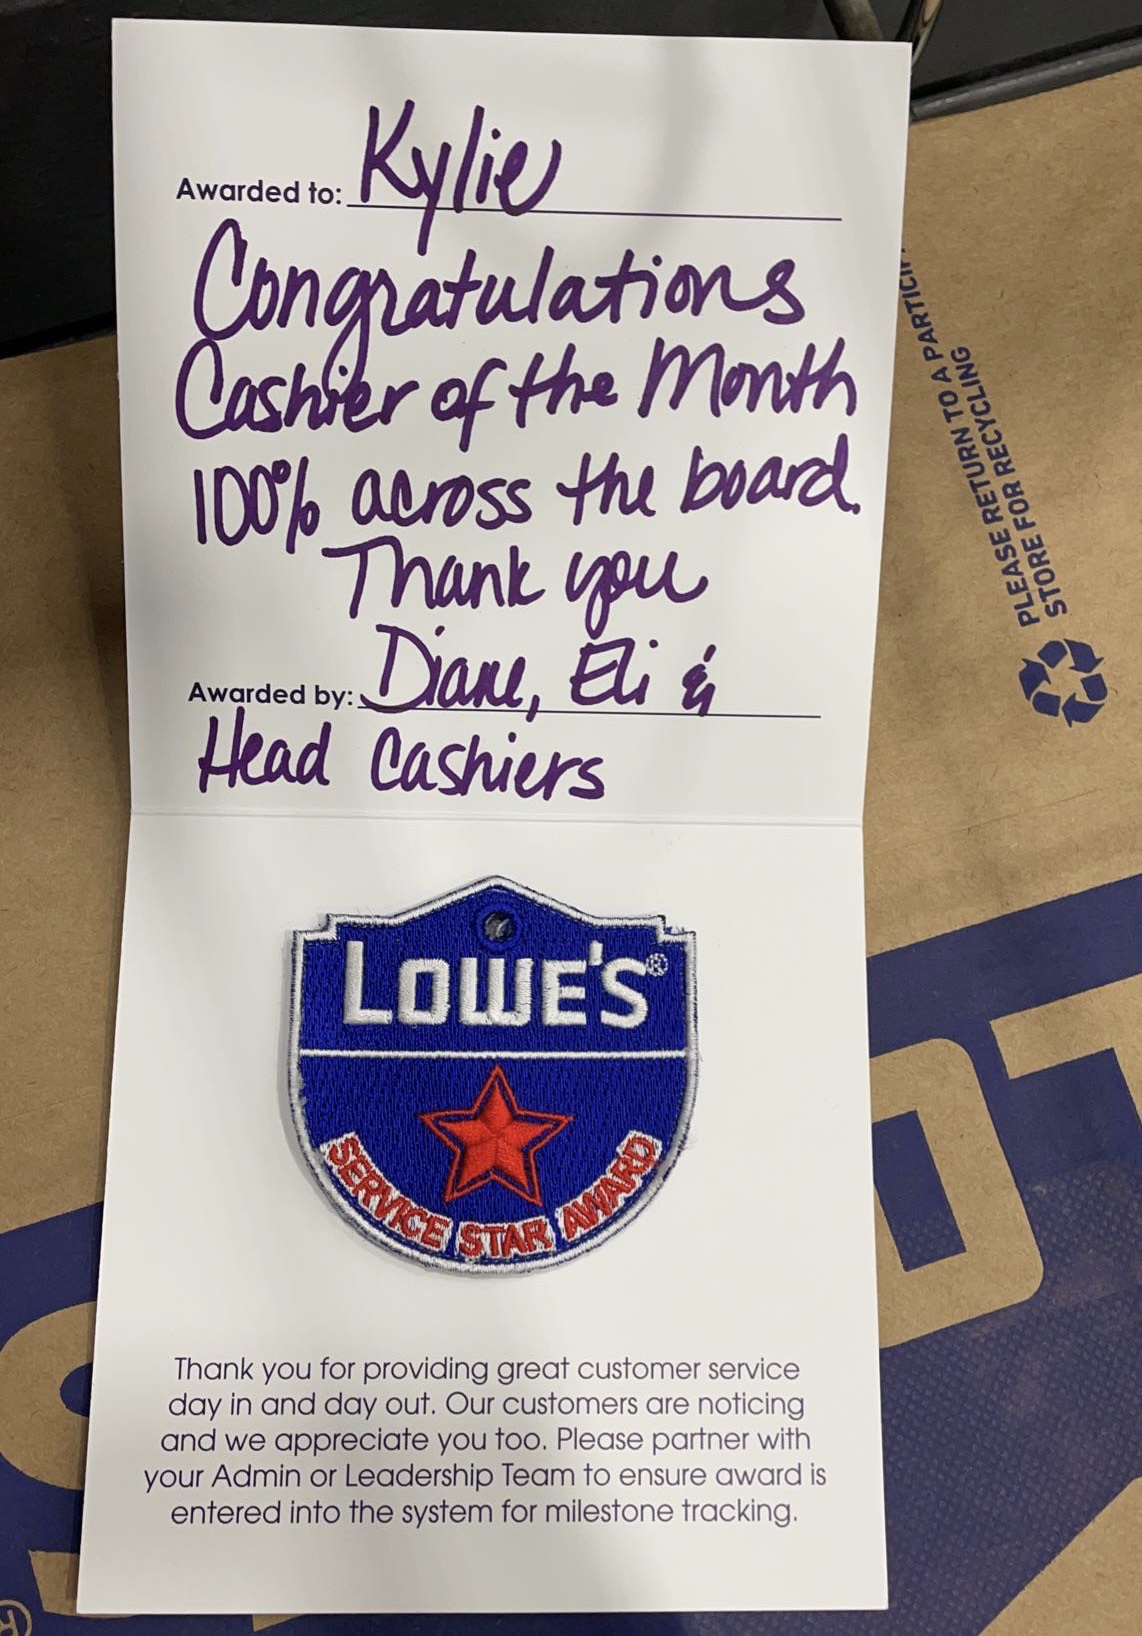 Awarded to: Kylie
Congratulations
Cashier of the Month
100% across the board.
Thank you
Awarded by: Diane, Eli &
Head Cashiers
LOWE'S®
SERVICE STAR AWARD
Thank you for providing great customer service
day in and day out. Our customers are noticing
and we appreciate you too. Please partner with
your Admin or Leadership Team to ensure award is
entered into the system for milestone tracking.
PLEASE RETURN TO A
STORE FOR RECYCLING
®